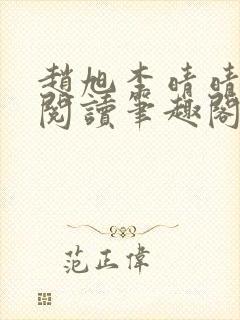 趙旭李晴晴
閱讀筆趣閣
范正偉